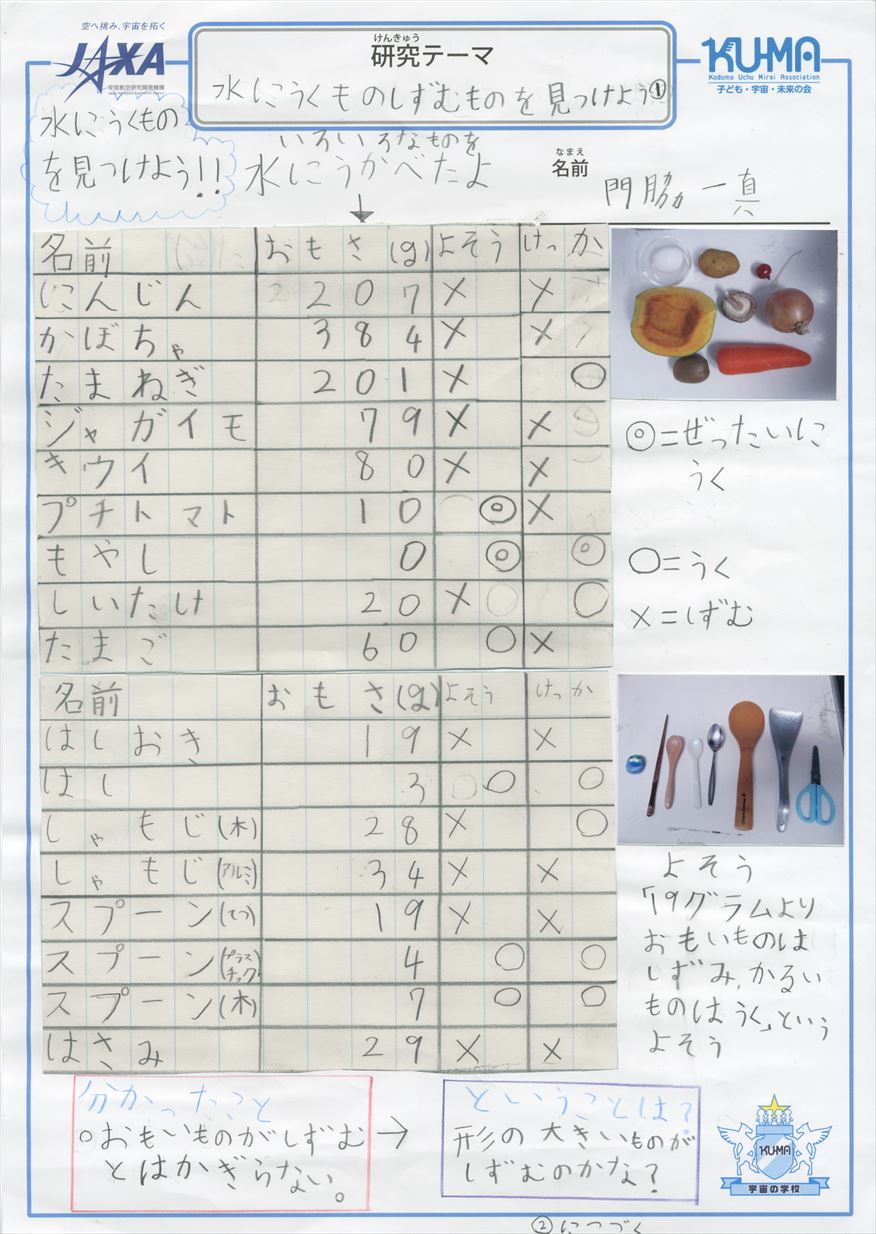 空へ挑み、宇宙を拓く
JAXA
宇宙航空研究開発機構
けんきゅう
研究テーマ
水にうくものしずむものを見つけよう①
KU-MA
Kodomo Uchu Mirai Association
子ども・宇宙・未来の会
水にうくもの
を見つけよう!!
いろいろなものを
水にうかべたよ
↓
なまえ
名前
門脇 一真
名前 おもさ(g) よそう けっか
にんじん 207 × ×
かぼちゃ 384 × ×
たまねぎ 201 × ○
ジャガイモ 79 × ×
キウイ 80 × ×
プチトマト 10 ◎ ×
もやし 0 ◎ ◎
しいたけ 20 × ○
たまご 60 ○ ×
◎=ぜったいに
うく
○=うく
×=しずむ
名前 おもさ(g) よそう けっか
はしおき 19 × ×
はし 3 ○ ○
しゃもじ(木) 28 × ○
しゃもじ(アルミ) 34 × ×
スプーン(てつ) 19 × ×
スプーン(プラスチック) 4 ○ ○
スプーン(木) 7 ○ ○
はさみ 29 × ×
よそう
「19グラムより
おもいものは
しずみ,かるい
ものはうく」という
よそう
分かったこと
○おもいものがしずむ
とはかぎらない。
→
ということは?
形の大きいものが
しずむのかな?
KU-MA
宇宙の学校
②につづく